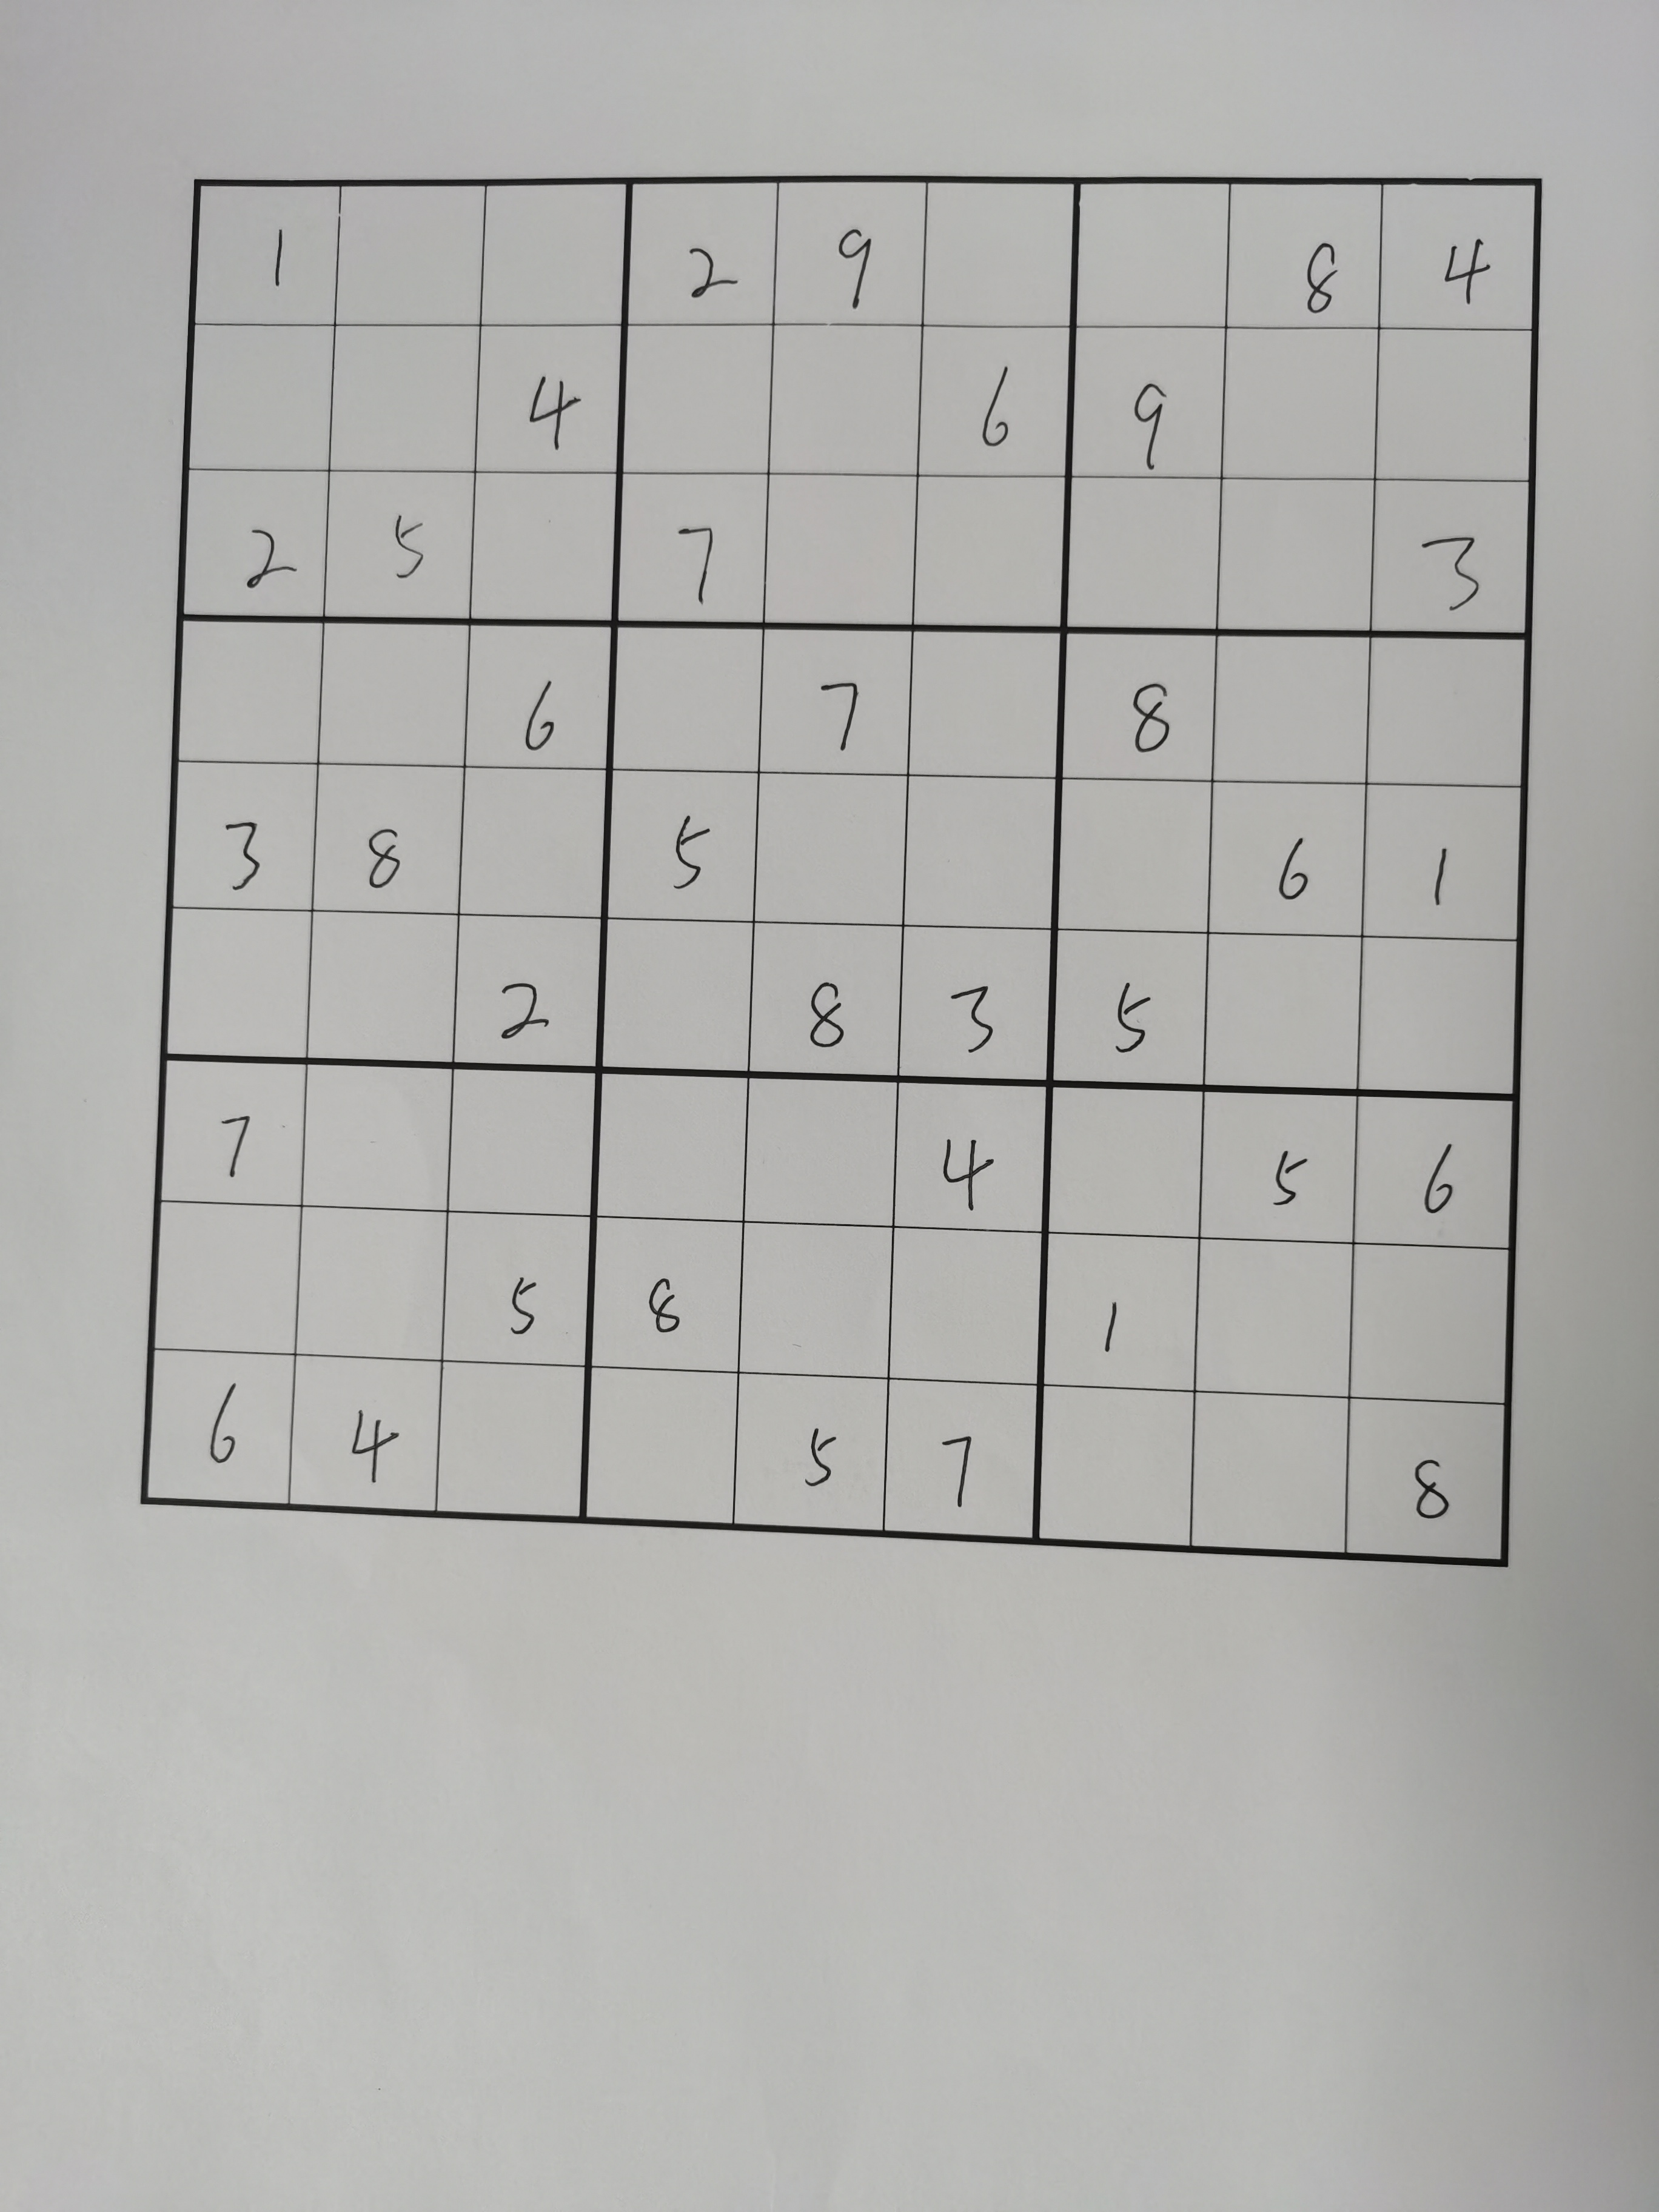 1 2 9 8 4
4 6 9
2 5 7 3
6 7 8
3 8 5 6 1
2 8 3 5
7 4 5 6
5 8 1
6 4 5 7 8